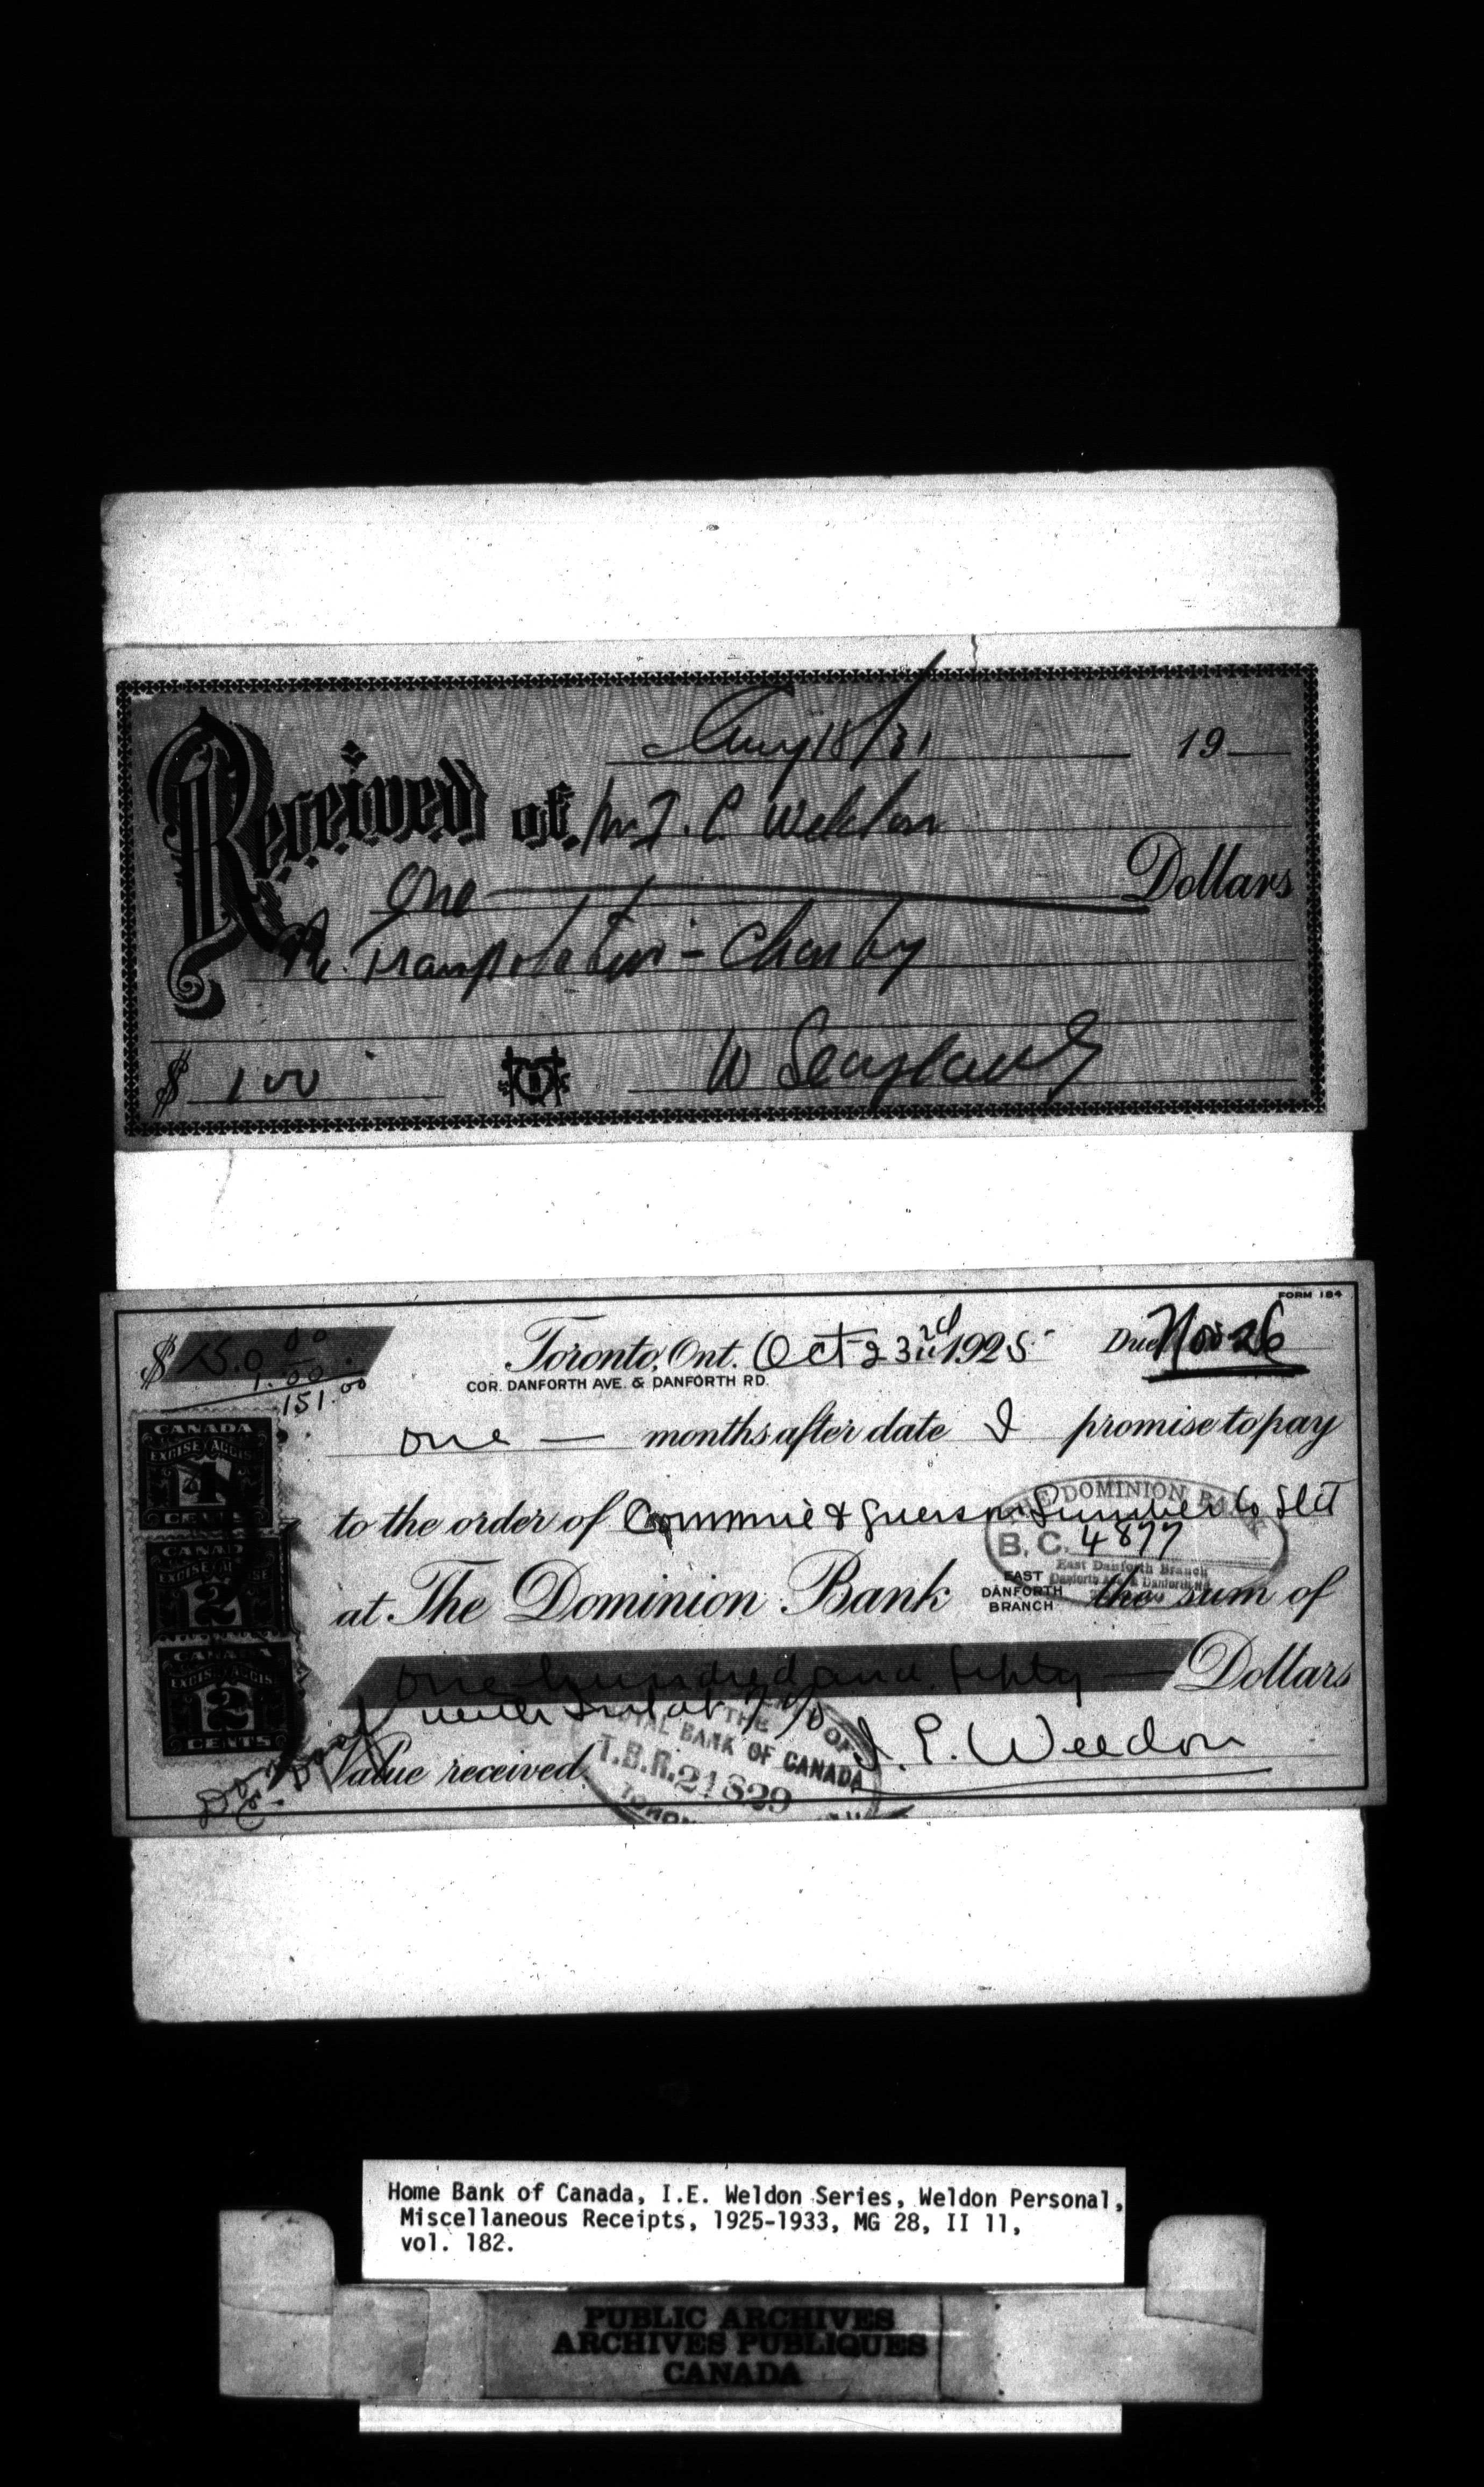 Aug 18/31 19
Received of Mr I. E. Weldon
One Dollars
Re. Transportation - Charity
$ 1 00
W
FORM 184
$ 150 00 Toronto, Ont. Oct 23rd 1925 Due Nov 26
COR. DANFORTH AVE. & DANFORTH RD.
1.00
151.00
one months after date I promise to pay
to the order of & Lumber Co Ltd
at The Dominion Bank EAST DANFORTH BRANCH the sum of
one hundred and fifty Dollars
with Int at 7%
Value received I. E. Weldon
CANADA
EXCISE ACCISE
CENTS
CANADA
EXCISE ACCISE
2
CANADA
EXCISE ACCISE
2
CENTS
THE DOMINION BANK
B. C. 4877
East Danforth Branch
THE
ROYAL BANK OF CANADA
T.B.R. 21829
Home Bank of Canada, I.E. Weldon Series, Weldon Personal,
Miscellaneous Receipts, 1925-1933, MG 28, II 11,
vol. 182.
PUBLIC ARCHIVES
ARCHIVES PUBLIQUES
CANADA